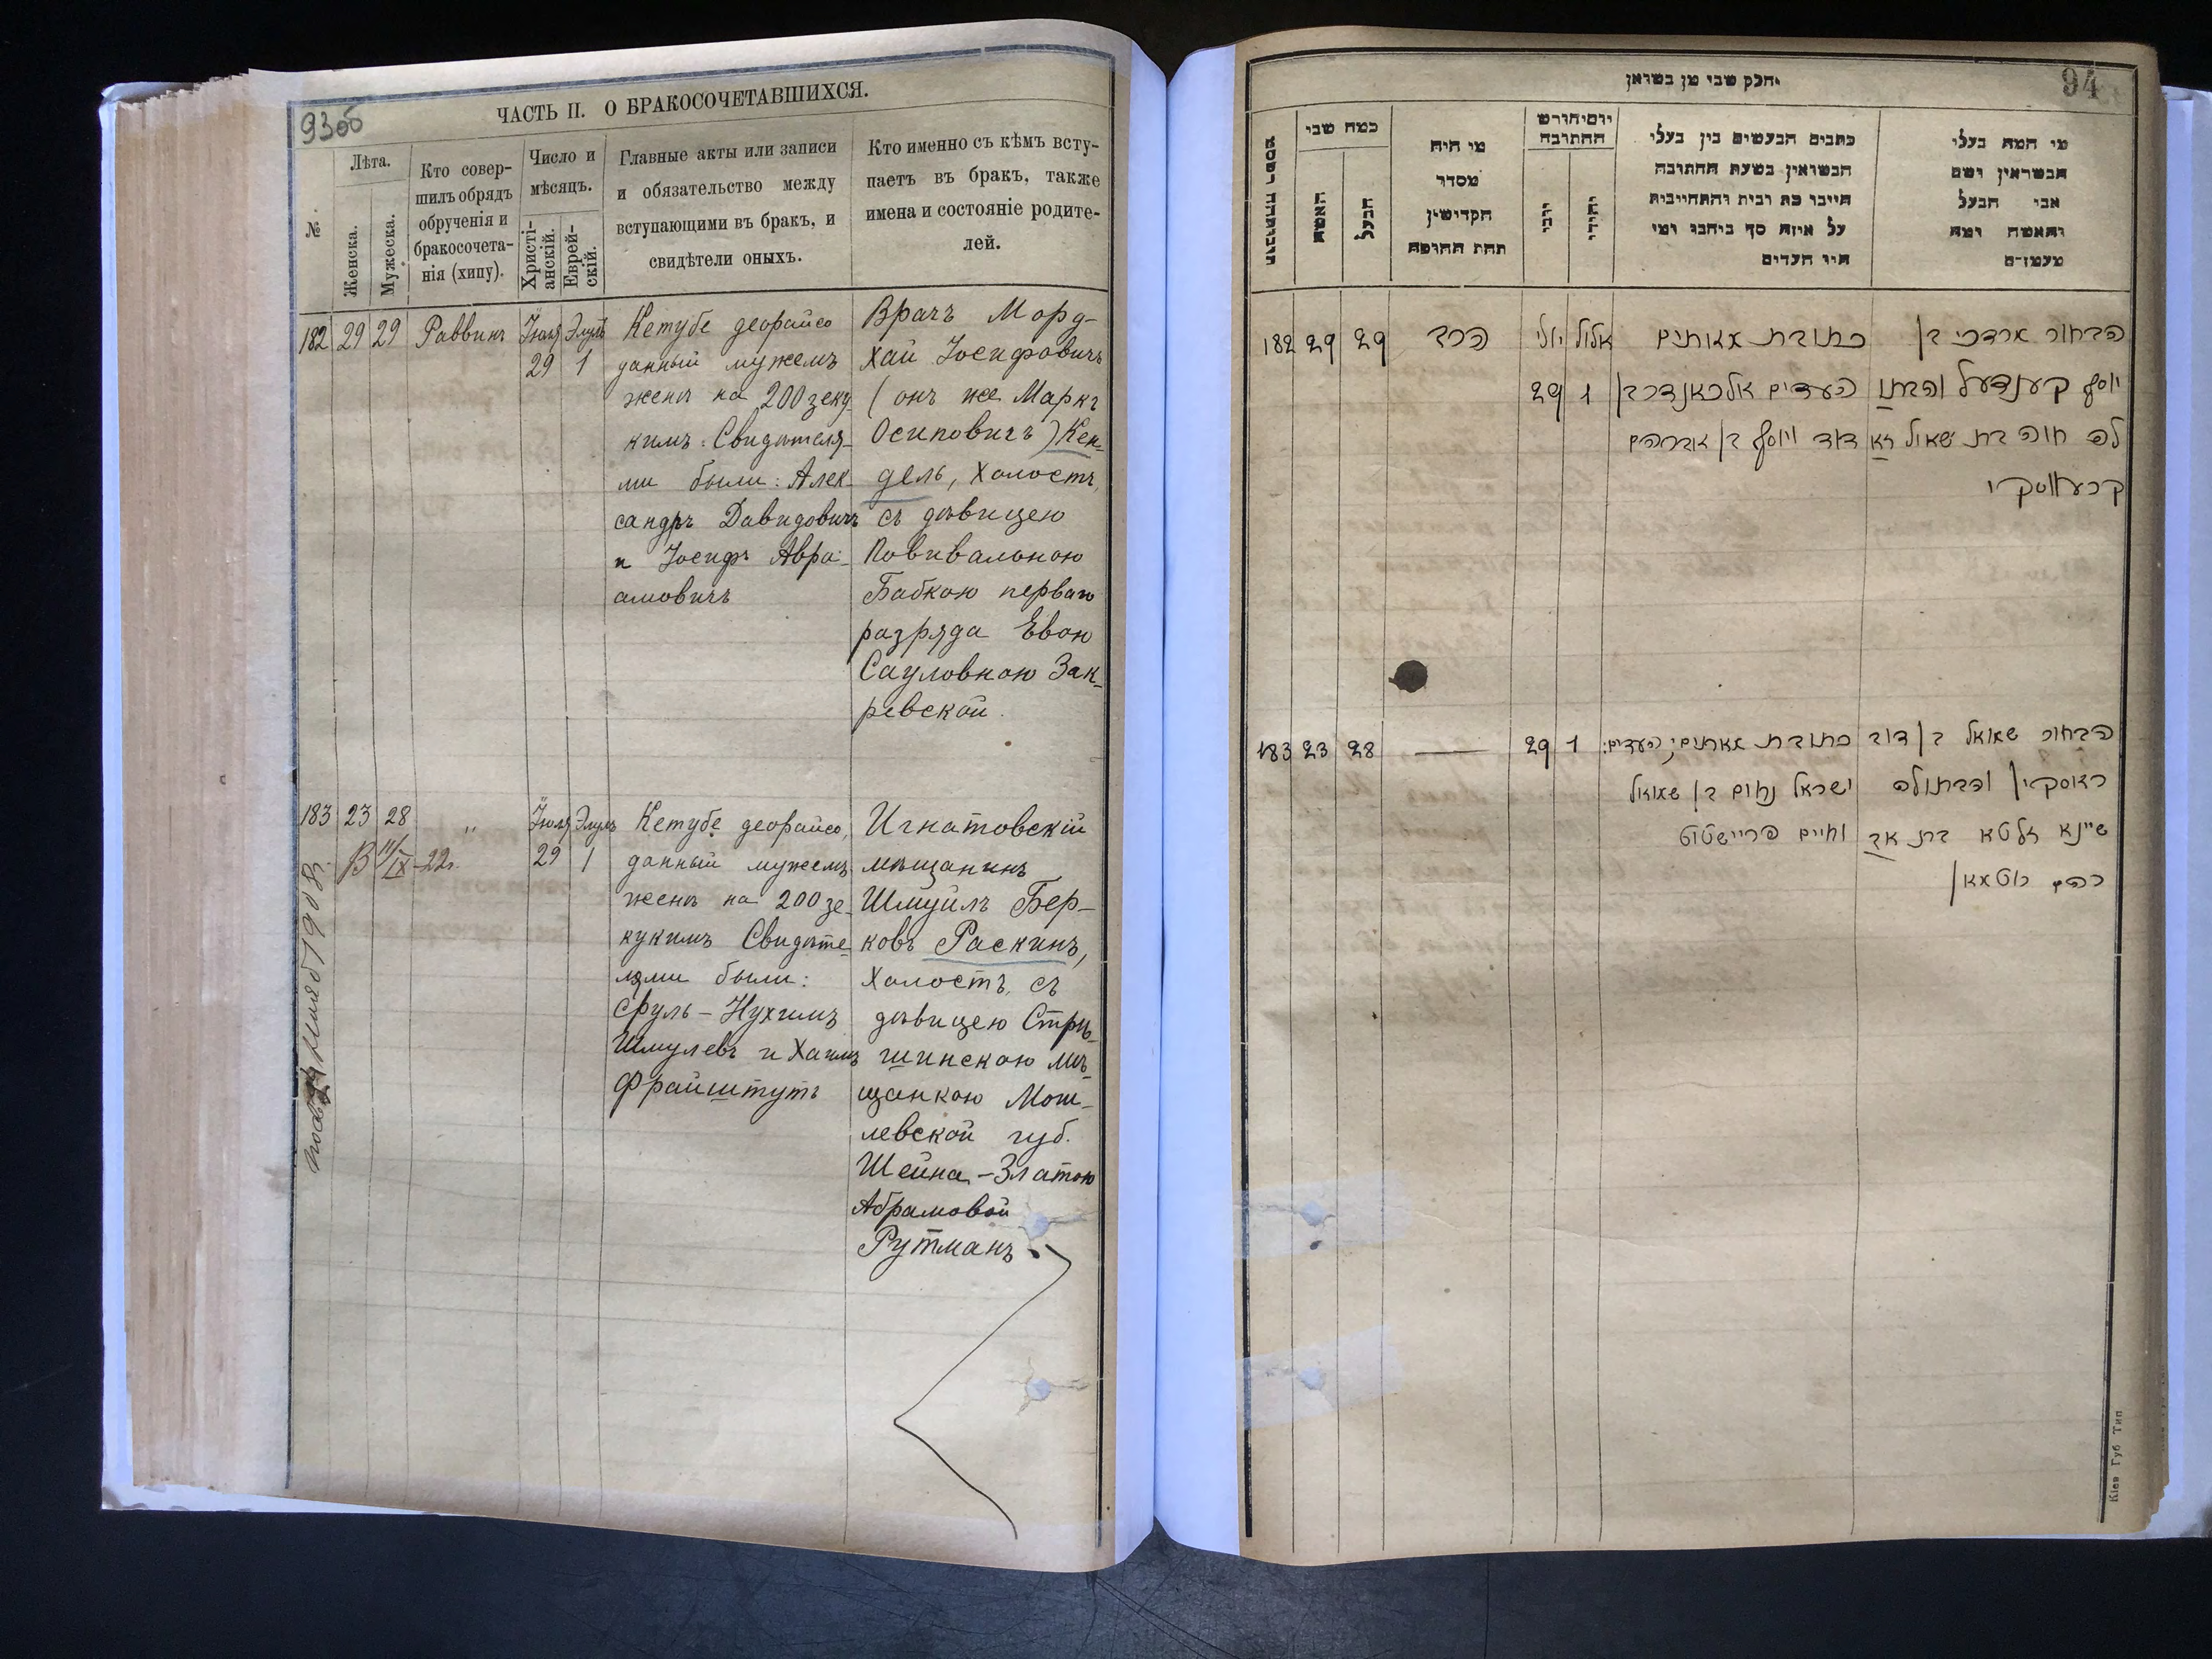 93об
ЧАСТЬ II. О БРАКОСОЧЕТАВШИХСЯ.
№
Лѣта.
Женска.
Мужеска.
Кто совер-
шилъ обрядъ
обрученія и
бракосочета-
нія (хипу).
Число и
мѣсяцъ.
Христі-
анскій.
Еврей-
скій.
Главные акты или записи
и обязательство между
вступающими въ бракъ, и
свидѣтели оныхъ.
Кто именно съ кѣмъ всту-
паетъ въ бракъ, также
имена и состояніе родите-
лей.
182 29 29 Раввинъ
Іюля 29
Элулъ 1
Кетубе деорайсо
данный мужемъ
женѣ на 200 зеку
кимъ. Свидѣтеля-
ми были: Алек-
сандръ Давидовичъ
и Іосифъ Авра-
амовичъ
Врачъ Морд-
хай Іосифовичъ
(онъ же Маркъ
Осиповичъ) Кен-
дель, холостъ,
съ дѣвицею
Повивальною
Бабкою перваго
разряда Евою
Сауловною Зак-
ревской.
183 23 28 "
Іюля 29
Элулъ 1
В 11/IX-22г.
Кетубе деорайсо,
данный мужемъ
женѣ на 200 зе-
кукимъ Свидѣте-
лями были:
Сруль-Нухимъ
Шмулевъ и Хаимъ
Фрайштутъ
Игнатовскій
мѣщанинъ
Шмуилъ Бер-
ковъ Раскинъ,
холостъ, съ
дѣвицею Стри-
шинскою мѣ-
щанкою Моги-
левской губ.
Шейна-Златою
Абрамовой
Рутманъ.
94
כמה שני
האשה
הבעל
מי היה
מסדר
הקדושין
תחת החופה
יום וחודש
החתונה
יהודי
מי המה בעלי
הנשואין ושם
אבי הבעל
והאשה
182 29 29 הרב
יולי 29
אלול 1
כתובת מאותים
העדים אלכאנדר בן
דוד ויוסף בן אברהם
הבחור מרדכי בן
יוסף קענדעל והבתו
לה חוה בת שאול זא
קרעווסקי
183 23 28 —
29 1
כתובת מאותים, העדים:
ישראל נחום בן שמואל
וחיים פריישטוט
הבחור שמואל בן דוב
ראסקין והבתולה
שיינא זלטא בת אב
רהם רוטמאן
Кіев Губ Тип